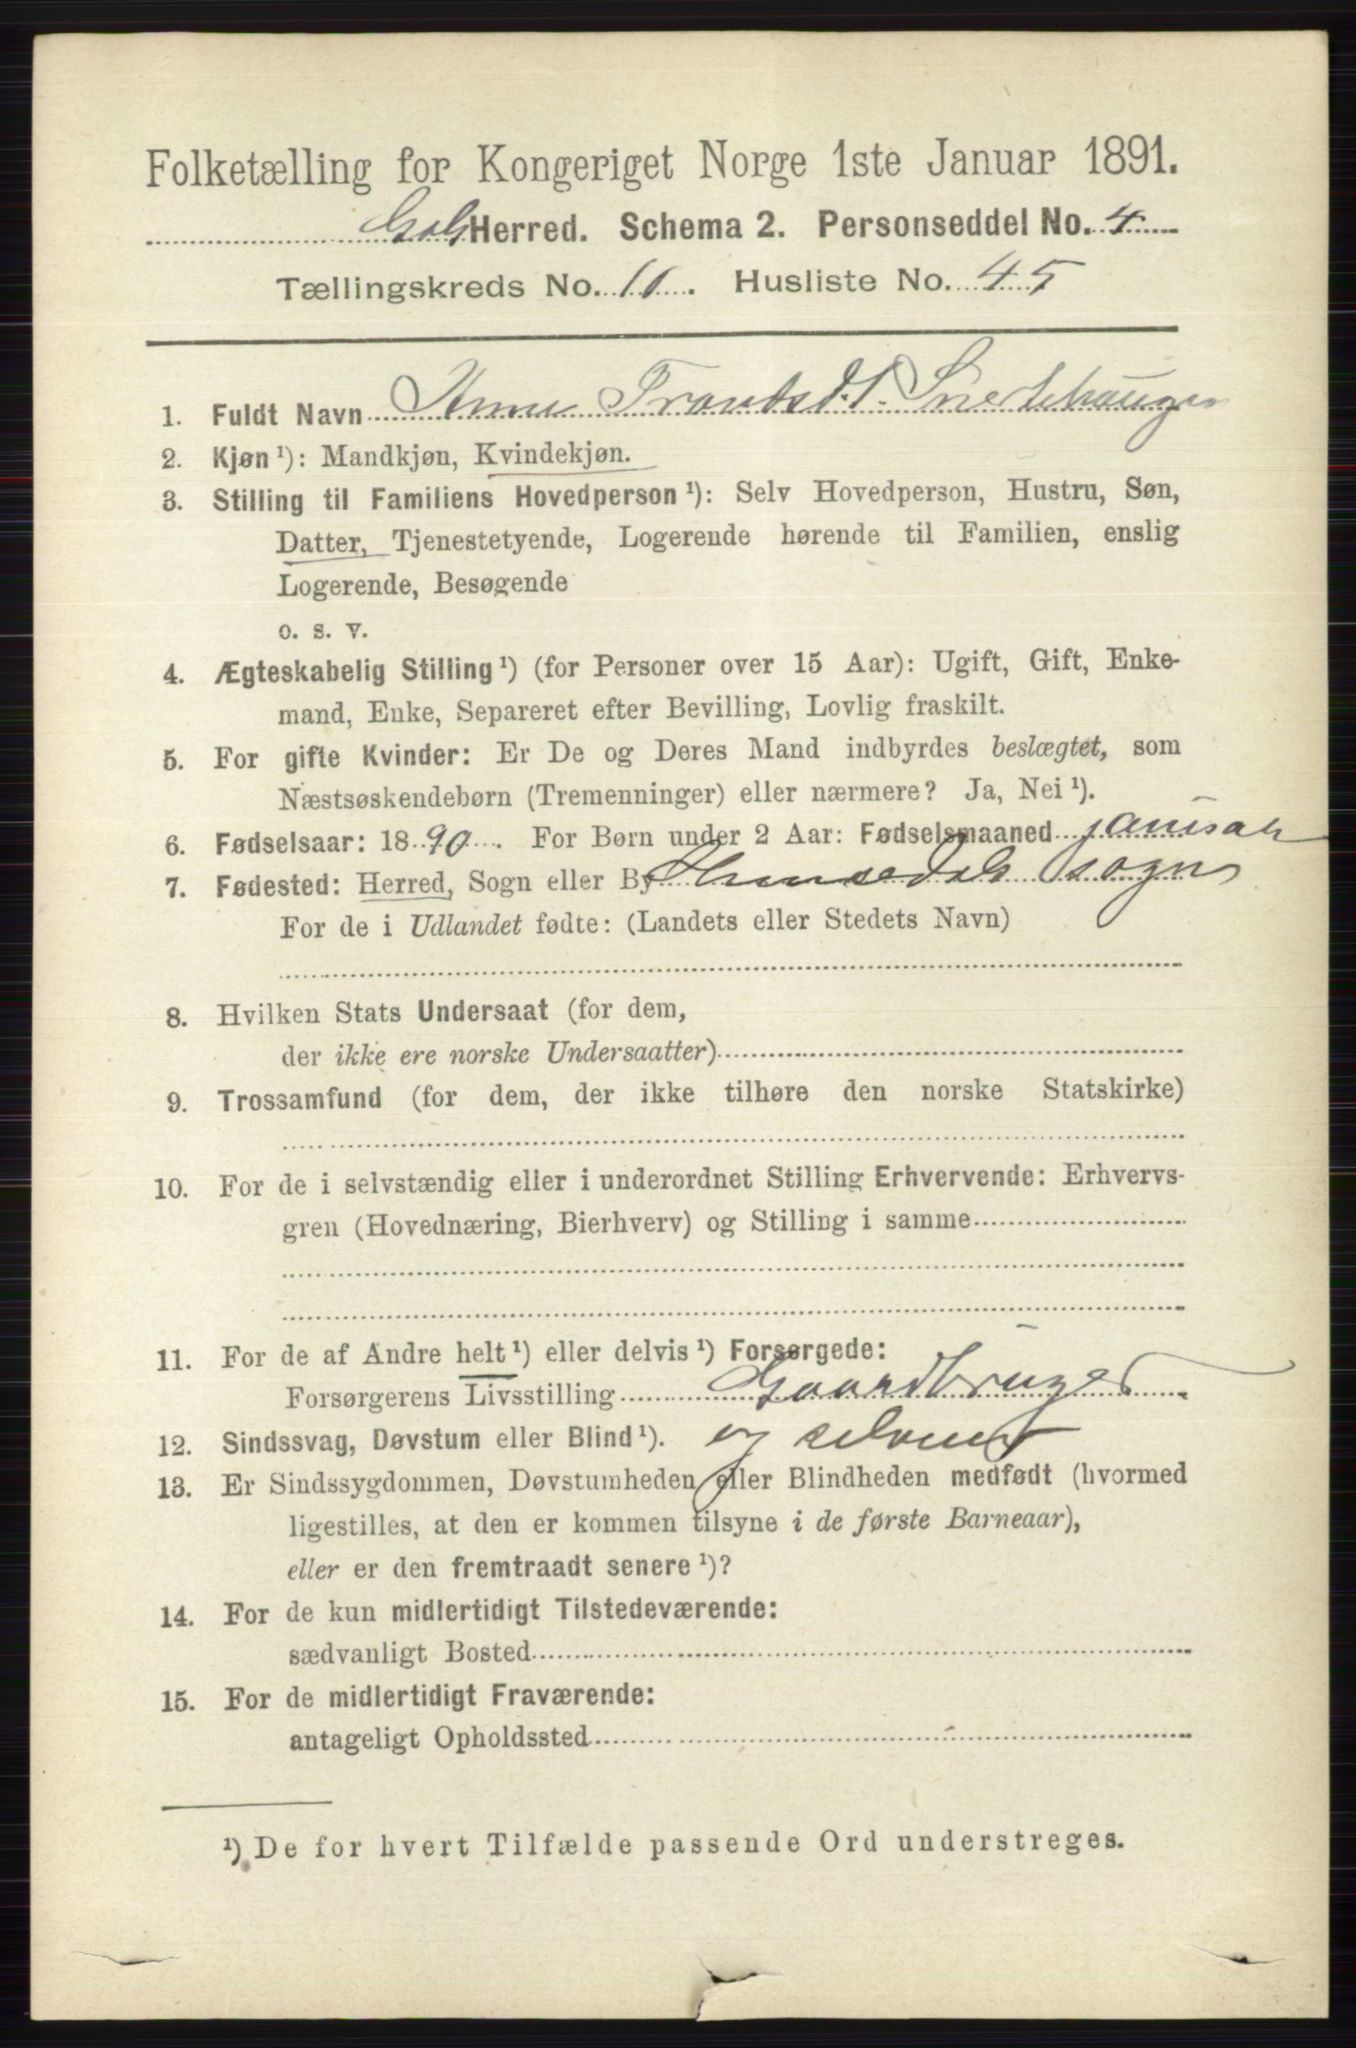 Folketælling for Kongeriget Norge 1ste Januar 1891.
Gol Herred. Schema 2. Personseddel No. 4
Tællingskreds No. 11. Husliste No. 45
1. Fuldt Navn Anne Trondsd.t.
2. Kjøn ¹): Mandkjøn, Kvindekjøn.
3. Stilling til Familiens Hovedperson ¹): Selv Hovedperson, Hustru, Søn,
Datter, Tjenestetyende, Logerende hørende til Familien, enslig
Logerende, Besøgende
o. s. v.
4. Ægteskabelig Stilling ¹) (for Personer over 15 Aar): Ugift, Gift, Enke-
mand, Enke, Separeret efter Bevilling, Lovlig fraskilt.
5. For gifte Kvinder: Er De og Deres Mand indbyrdes beslægtet, som
Næstsøskendebørn (Tremenninger) eller nærmere? Ja, Nei ¹).
6. Fødselsaar: 1890. For Børn under 2 Aar: Fødselsmaaned januar
7. Fødested: Herred, Sogn eller By Hemsedals sogn
For de i Udlandet fødte: (Landets eller Stedets Navn)
8. Hvilken Stats Undersaat (for dem,
der ikke ere norske Undersaatter)
9. Trossamfund (for dem, der ikke tilhøre den norske Statskirke)
10. For de i selvstændig eller i underordnet Stilling Erhvervende: Erhvervs-
gren (Hovednæring, Bierhverv) og Stilling i samme
11. For de af Andre helt ¹) eller delvis ¹) Forsørgede:
Forsørgerens Livsstilling Gaardbruger
12. Sindssvag, Døvstum eller Blind ¹). og selveier
13. Er Sindssygdommen, Døvstumheden eller Blindheden medfødt (hvormed
ligestilles, at den er kommen tilsyne i de første Barneaar),
eller er den fremtraadt senere ¹)?
14. For de kun midlertidigt Tilstedeværende:
sædvanligt Bosted
15. For de midlertidigt Fraværende:
antageligt Opholdssted
¹) De for hvert Tilfælde passende Ord understreges.